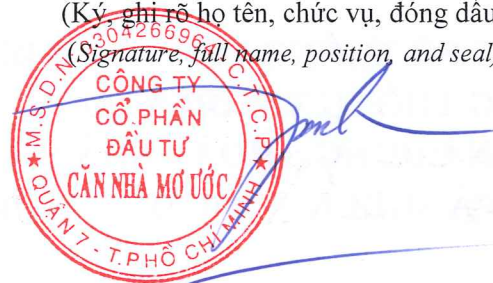 (Ký, ghi rõ họ tên, chức vụ, đóng dấu
(Signature, full name, position, and seal)
M.S.D.N: 030426696 C.T.C.P
CÔNG TY
CỔ PHẦN
ĐẦU TƯ
CĂN NHÀ MƠ ƯỚC
QUẬN 7 - T.PHỐ CHÍ MINH